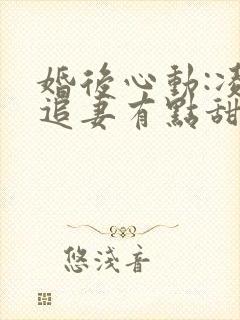 婚後心動:凌
追妻有點甜
悠淺音